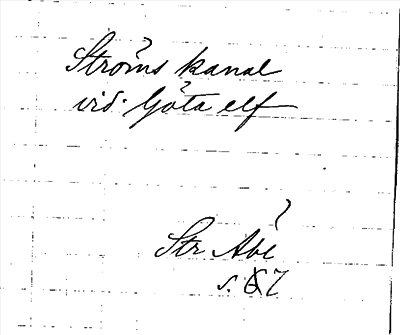 Ströms kanal
vid Göta elf
Str Abc
s. 67